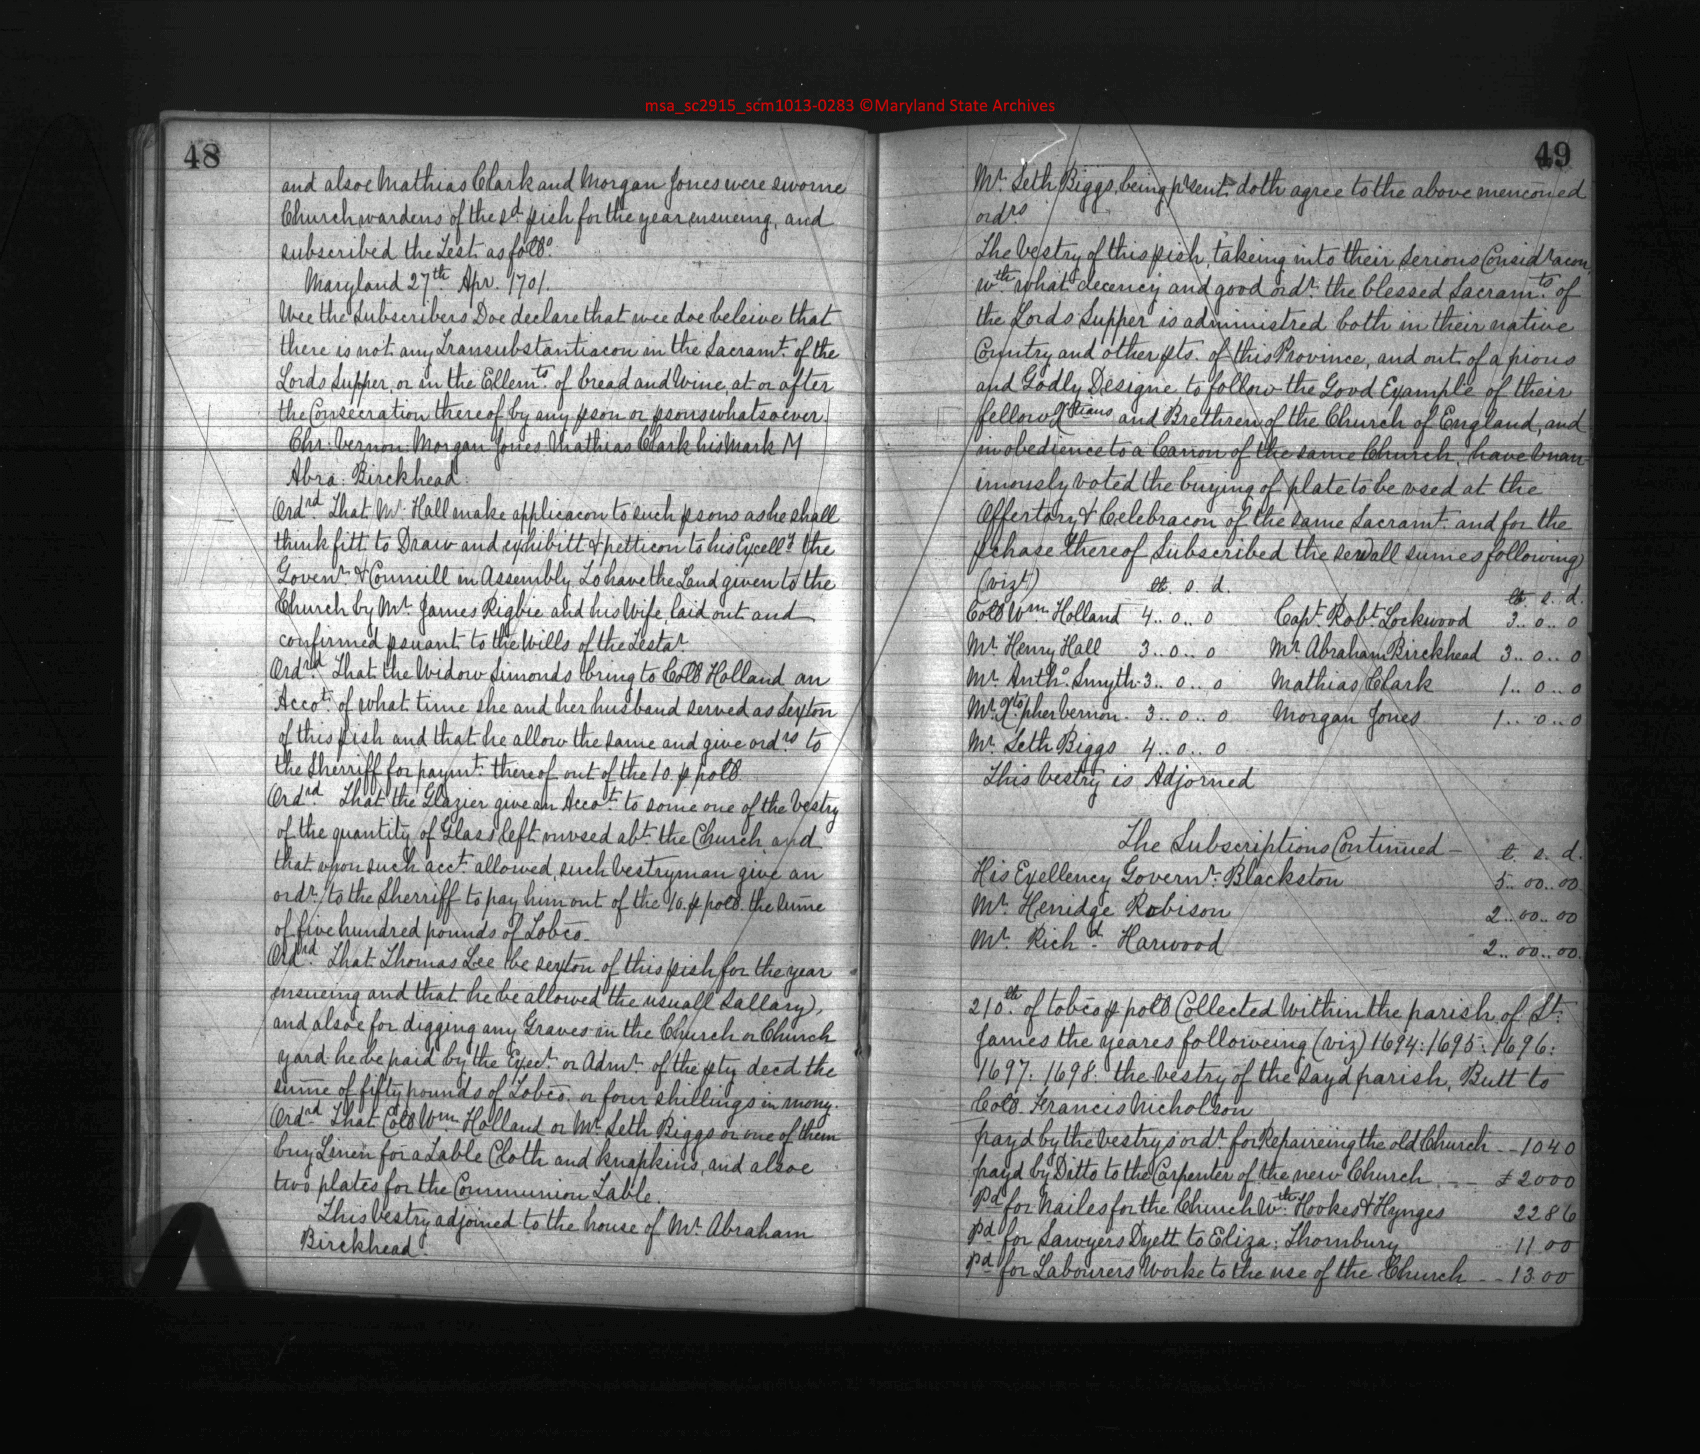 msa_sc2915_scm1013-0283 ©Maryland State Archives
48
and alsoe Mathias Clark and Morgan Jones were sworne
Churchwardens of the sd. pish for the year ensueing, and
subscribed the Test. as follo.
Maryland 27th Apr. 1701.
Wee the Subscribers Doe declare that wee doe beleive that
there is not any Transubstantiacon in the Sacramt. of the
Lords Supper, or in the Ellemts. of bread and Wine, at or after
the Consecration thereof by any pson or psons whatsoever.
Chr. Vernon Morgan Jones Mathias Clark his Mark M
Abra: Birckhead:
Ordrd That Mr. Hall make applicacon to such psons as he shall
think fitt to Draw and exhibitt & petticon to his Excelly the
Govenr. & Councill in Assembly To have the Land given to the
Church by Mr. James Rigbie and his Wife, laid out and
confirmed psuant to the Wills of the Testar.
Ordrd That the Widow Simonds bring to Coll Holland an
Accot. of what time she and her husband served as Sexton
of this pish and that he allow the same and give ordrs to
the Sherriff for paymt. thereof out of the 10. p poll.
Ordrd. That the Glazier give an Accot. to some one of the Vestry
of the quantity of Glass left unvsed abt. the Church, and
that upon such acct. allowed, such Vestryman give an
ordr. to the Sherriff to pay him out of the 10. p poll. the sume
of five hundred pounds of Tobco.
Ordrd. That Thomas Lee be sexton of this pish for the year
ensueing and that he be allowed the usuall Sallary),
and alsoe for digging any Graves in the Church or Church
yard he be paid by the Execr. or Admr. of the pty decd. the
sume of fifty pounds of Tobco. or four shillings in mony.
Ordrd. That Coll Wm. Holland or Mr. Seth Biggs or one of them
buy Linen for a Table Cloth and knapkins, and alsoe
two plates for the Communion Table.
This Vestry adjoined to the house of Mr. Abraham
Birckhead.
49
Mr. Seth Biggs, being psent. doth agree to the above menconed
ordrs
The Vestry of this pish, takeing into their serious Considracon,
wth what decency and good ordr. the blessed Sacramts. of
the Lords Supper is administred both in their native
Country and other pts. of this Province, and out of a pious
and Godly Designe to follow the Good Example of their
fellow Xtians and Brethren of the Church of England, and
in obedience to a Canon of the same Church, have Unan-
imously voted the buying of plate to be vsed at the
Offertory & Celebracon of the same Sacramt. and for the
pchase thereof Subscribed the sevall sumes following)
(vizt) lt. s. d.
lt. s. d.
Coll Wm. Holland 4..0..0 Capt. Robt. Lockwood 3..0..0
Mr. Henry Hall 3..0..0 Mr. Abraham Birckhead 3..0..0
Mr. Antho. Smyth 3..0..0 Mathias Clark 1..0..0
Mr. Xtopher Vernon. 3..0..0 Morgan Jones 1..0..0
Mr. Seth Biggs 4..0..0
This Vestry is Adjorned
The Subscriptions Continued — £. s. d.
His Exellency Governr. Blackston 5..00..00
Mr. Henidge Robison 2..00..00
Mr. Richd. Harwood 2..00..00.
210th. of tobco p poll Collected Within the parish of St.
James the yeares followeing (viz) 1694: 1695: 1696:
1697: 1698: the vestry of the sayd parish, Butt to
Coll. Francis Nicholson
payd by the vestrys ordr. for Repaireing the old Church -- 1040
payd by Ditto to the Carpenter of the new Church -- £2000
Pd for Nailes for the Church Wth. Hookes & Hynges 2286
Pd for Sawyers Dyett to Eliza: Thornbury 1100
Pd for Labourers Worke to the use of the Church -- 1300